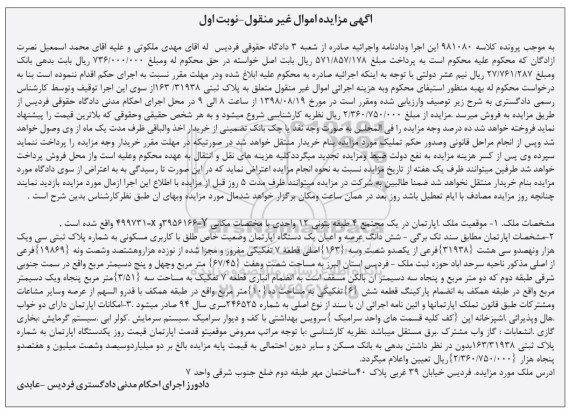 آگهی مزایده اموال غیر منقول -نوبت اول
به موجب پرونده کلاسه ۹۸۱۰۸۰ این اجرا ودادنامه واجرائیه صادره از شعبه ۳ دادگاه حقوقی فردیس له اقای مهدی ملکوتی و علیه اقای محمد اسمعیل نصرت
ازادگان که محکوم علیه محکوم است به پرداخت مبلغ ۵۷۱/۸۵۷/۱۷۸ ریال بابت اصل خواسته در حق محکوم له ومبلغ ۷۳۶/۰۰۰/۰۰۰ ریال بابت بدهی بانک
ومبلغ ۲۷/۷۶۱/۲۸۷ ریال نیم عشر دولتی با توجه به اینکه اجرائیه صادره به محکوم علیه ابلاغ شده ودر مهلت مقرر نسبت به اجرای حکم اقدام ننموده است بنا به
درخواست محکوم له بهیه منظور استیفای محکوم وبه هزینه اجرائی اموال غیر منقول متعلق به پلاک ثبتی ۱۶۳/۳۱۹۳۸از سوی این اجرا توقیف وتوسط کارشناس
رسمی دادگستری به شرح زیر توصیف وارزیابی شده ومقرر است در مورخ ۱۳۹۸/۰۸/۱۹ از ساعت ۸ الی ۹ در محل اجرای احکام مدنی دادگاه حقوقی فردیس از
طریق مزایده به فروش میرسد .مزایده از مبلغ ۲/۳۶۰/۷۵۰/۰۰۰ ریال نظریه کارشناسی شروع میشود و به هر شخص حقیقی وحقوقی که بالاترین قیمت را پیشنهاد
نماید فروخته خواهد شد ده درصد وجه مزایده را فی المجلس به صورت وجه نقد یا چک بانک تضمینی از خریدار اخذ والباقی ظرف مدت یک ماه از وی وصول خواهد
شد وپس از انجام مراحل قانونی وصدور حکم تملیک مورد مزایده بنام خریدار منتقل خواهد شد در صورتیکه در مهلت مقرر خریدار وجه مزایده را پرداخت ننماید
سپرده وی پس از کسر هزینه مزایده به نفع دولت ضبط ومزایده تجدید میگرددکلیه هزینه های نقل و انتقال به عهده محکوم وعلیه است واز محل فروش پرداخت
خواهد شد طرفین میتوانند ظرف یک هفته از تاریخ مزایده نسبت به نحوه انجام مزایده اعتراض نماید که در این صورت تا رسیدگی به به اعتراض از سوی دادگاه مورد
مزایده بنام خریدار منتقل نخواهد شد ضمنا طالبین به شرکت در مزایده میتوانند ظرف مدت ۵ روز قبل از مزایده با اطلاع این اجرا ازمال مورد مزایده بازدید نمایند
چنانچه روز مزایده مصادف با ایام تعطیل باشد روز بعد در همان ساعت ومکان برگزار خواهد شدمال مورد مزایده وبهای ان طبق نظرکارشناس بدین شرح است .
مشخصات ملک. ۱- موقعیت ملک .اپارتمان در یک مجتمع ۴ طبقه جنوبی ۱۲ واحدی با مختصات مکانی Y-۳۹۵۶۱۶۶و x-۴۹۹۷۳۱ واقع شده است .
۲-مشخصات اپارتمان مطابق سند تک برگی - شش دانگ عرصه و اعیان یک دستگاه اپارتمان وضعیت خاص طلق با کاربری مسکونی به شماره پلاک ثبتی سی ویک
هزار ونهصدو سی هشت {۳۱۹۳۸} فرعی از یکصدو شصت وسه {۱۶۳}اصلی قطعه ۷ تفکیکی مفروز و مجزا شده از نوزده هزاروهشتصد وشصت ونه {۱۹۸۶۹} فرعی
از اصلی مذکور ناحیه سرحد اباد حوزه ثبت ملک - فردیس استان البرز به مساحت شصت وهفت {۶۷/۴۵} متر مربع وچهل و پنج دسیمتر مربع واقع در سمت جنوبی
شرقی طبقه دوم که دو متر مربع و پنجاه سه دسیمتر ان بالکن مسقف است به انضمام انباری قطعه ۷ تفکیک به مساحت سه {۳/۵۱} متر مربع پنجاه ویک دسیمتر
مربع واقع در طبقه همکف به انضمام پارکینگ قطعه شش {۶}تفکیکی به مساحت ده {۱۰}متر مربع واقع در طبقه همکف با قدرو السهم از عرصه وسایر مشاعات
ومشترکات طبق قانون تملک اپارتمانها و ائین نامه اجرائی ان با سند از نوع اصلی به شماره ۲۴۶۵۲۵سری سال ۹۴ صادر میشود .۳-امکانات اپارتمان دارای دو خواب
.هال وپذیرائی .اشپزخانه اپن {کف کلیه قسمت های واحد سرامیک }سرویس بهداشتی با کف و دیوار سرامیک .سیستم سرمایش .کولر ابی .سیستم گرمایش .بخاری
گازی .انشعابات ؛ گاز واب مشترک .برق مستقل میباشد .نظریه کارشناسی .با توجه مراتب معروض موقعیتو قدمت اپارتمان قیمت روز یکدستگاه اپارتمان به شماره
پلاک ثبتی ۱۶۳/۳۱۹۳۸بدون در نظر داشتن بدهی به بانک مسکن و سایر دیون احتمالی به قیمت پایه مزایده بالغ بر دو میلیاردوسیصد وشصت میلیون و هفتصدو
پنجاه هزار {۲/۳۶۰/۷۵۰/۰۰۰}ریال تعیین واعلام میگردد.
ادرس ملک مورد مزایده. فردیس خیابان ۳۹ غربی پلاک ۴۰ساختمان مهر طبقه دوم ضلع جنوب شرقی واحد ۷
دادورز اجرای احکام مدنی دادگستری فردیس -عابدی